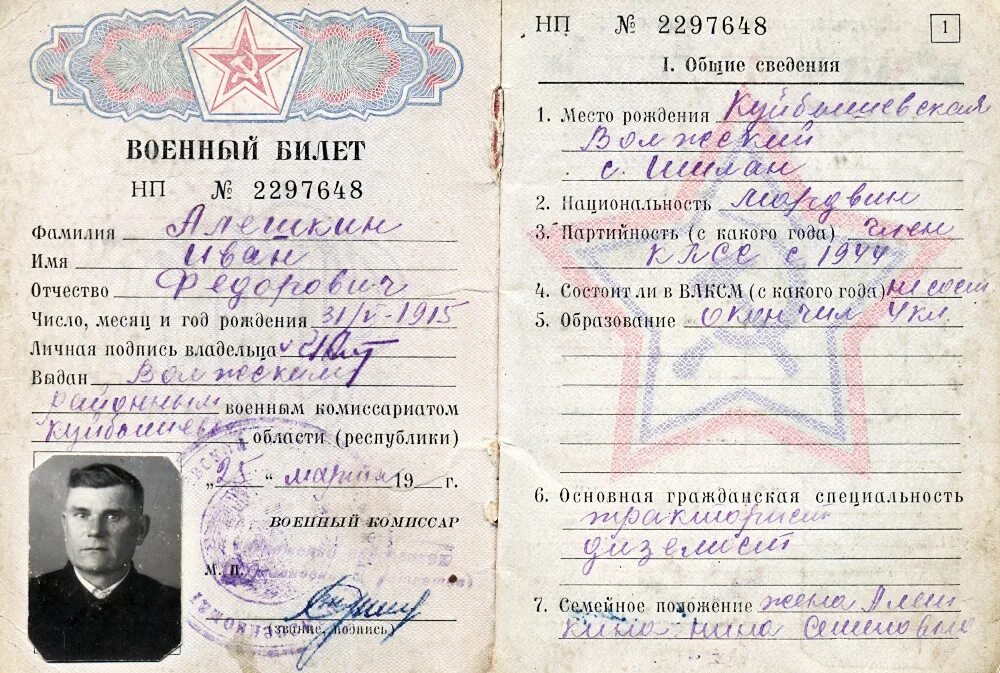 ВОЕННЫЙ БИЛЕТ
НП № 2297648
Фамилия Алешкин
Имя Иван
Отчество Федорович
Число, месяц и год рождения 31/V-1915
Личная подпись владельца
Выдан Волжским
районным военным комиссариатом
Куйбышев области (республики)
„25“ марта 19 г.
ВОЕННЫЙ КОМИССАР
М. П.
(звание, подпись)
НП № 2297648
1
I. Общие сведения
1. Место рождения Куйбышевская
Волжский
с. Шилан
2. Национальность мордвин
3. Партийность (с какого года) член
КПСС с 1944
4. Состоит ли в ВЛКСМ (с какого года) не сост
5. Образование окончил 4 кл.
6. Основная гражданская специальность
тракторист
дизелист
7. Семейное положение жена Алеш
кина Нина Семеновна